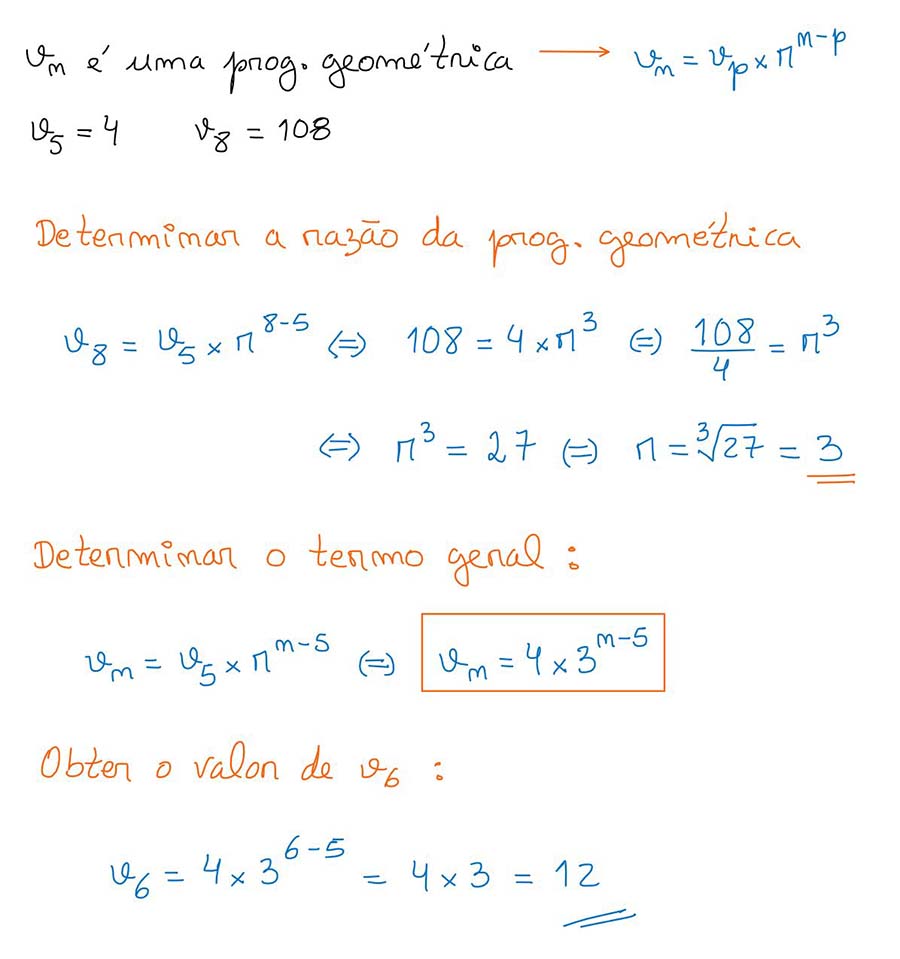 vₙ é uma prog. geométrica → vₙ = vₚ × rⁿ⁻ᵖ
v₅ = 4 v₈ = 108
Determinar a razão da prog. geométrica
v₈ = v₅ × r⁸⁻⁵ (=) 108 = 4 × r³ (=) 108/4 = r³
(=) r³ = 27 (=) r = ³√27 = 3
Determinar o termo geral :
vₙ = v₅ × rⁿ⁻⁵ (=) vₙ = 4 × 3ⁿ⁻⁵
Obter o valor de v₆ :
v₆ = 4 × 3⁶⁻⁵ = 4 × 3 = 12